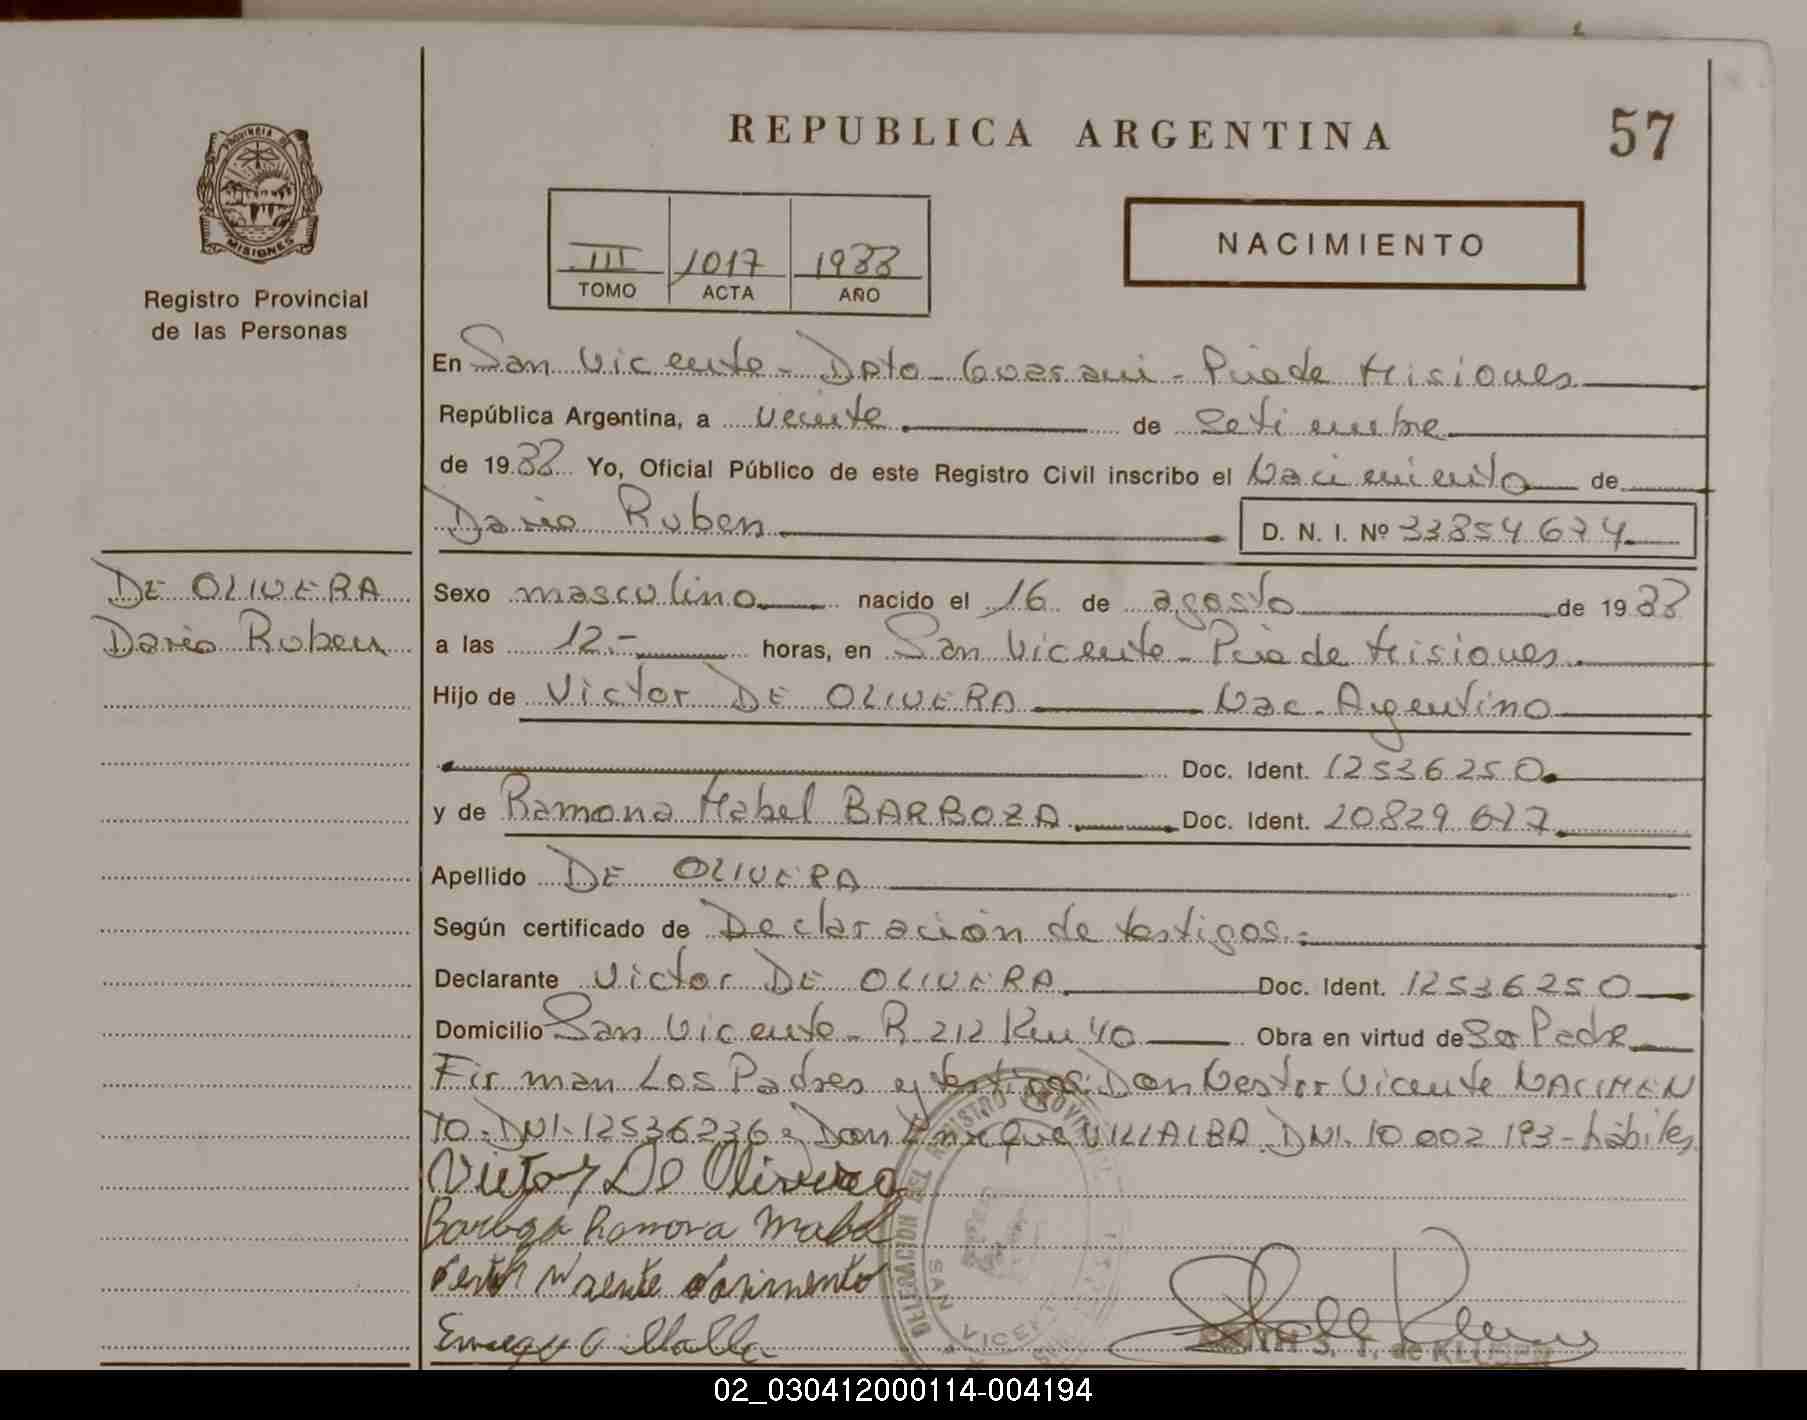 REPUBLICA ARGENTINA
57
PROVINCIA DE
MISIONES
Registro Provincial
de las Personas
III 1017 1988
TOMO ACTA AÑO
NACIMIENTO
En San Vicente - Dpto Guarani - Pcia de Misiones
República Argentina, a veinte de Setiembre
de 1988 Yo, Oficial Público de este Registro Civil inscribo el Nacimiento de
Dario Ruben D. N. I. Nº 33854674
DE OLIVERA
Dario Ruben
Sexo masculino nacido el 16 de agosto de 1988
a las 12.- horas, en San Vicente - Pcia de Misiones
Hijo de Victor DE OLIVERA Nac. Argentino
Doc. Ident. 12536250
y de Ramona Mabel BARBOZA Doc. Ident. 20829677
Apellido DE OLIVERA
Según certificado de Declaración de testigos.-
Declarante Victor DE OLIVERA Doc. Ident. 12536250
Domicilio San Vicente - R 212 Km 40 Obra en virtud de Ser Padre
Firman Los Padres y testigos: Don Nestor Vicente NACIMEN
TO - DNI. 12536236 y Don Enrique VILLALBA DNI. 10.002.193 - hábiles
Victor De Olivera
Ramona Mabel
DELEGACION DEL REGISTRO PROVINCIAL
SAN VICENTE
S. T. de KLUSEN
02_030412000114-004194